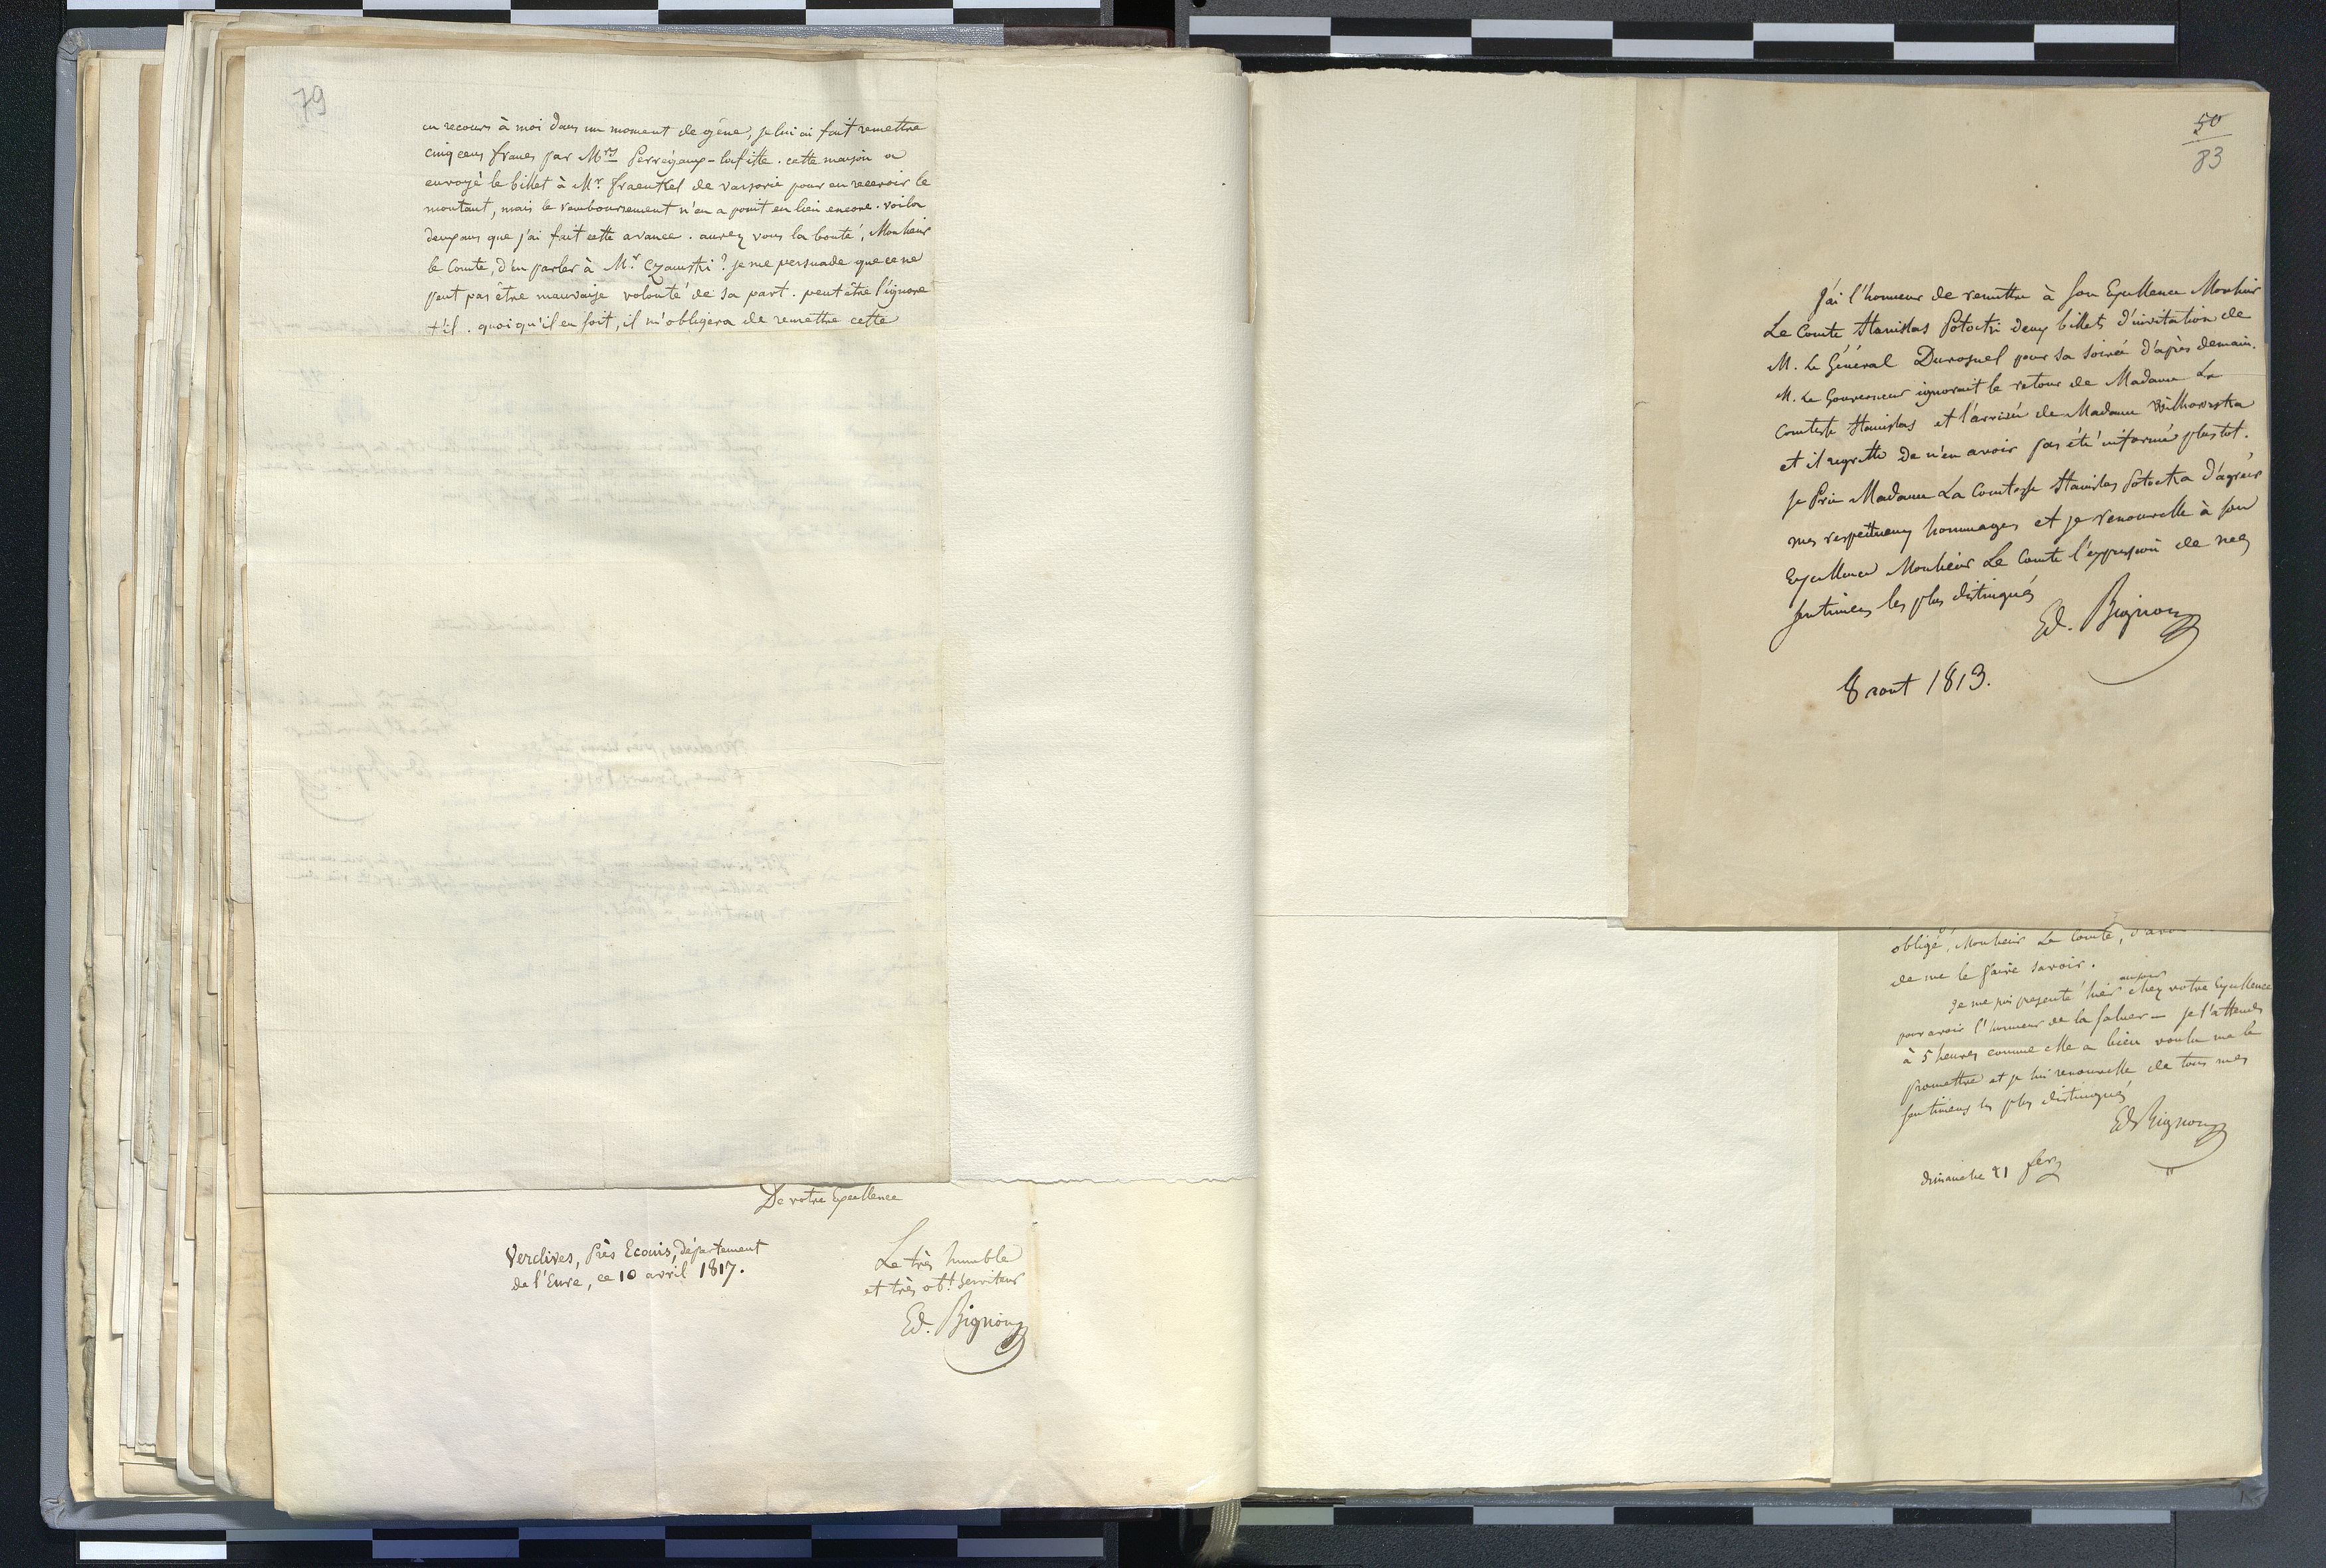 79
eu recours à moi dans un moment de gêne, je lui ai fait remettre
cinq cens francs par Mrs Perregaux-lafitte. cette maison a
envoyé le billet à Mr. fraenkel de varsovie pour en recevoir le
montant, mais le remboursement n'en a point eu lieu encore. voila
deux ans que j'ai fait cette avance. aurez vous la bonté, Monsieur
le Comte, d'en parler à Mr. ? je me persuade que ce ne
peut pas être mauvaise volonté de sa part. peut être l'ignore
t'il. quoiqu'il en soit, il m'obligera de remettre cette
De votre Excellence
Verclives, près Ecouis, département
de l'Eure, ce 10 avril 1817.
Le très humble
et très obt. serviteur
Ed. Bignon
50
83
J'ai l'honneur de remettre à son Excellence Monsieur
Le Comte Stanislas Potocki deux billets d'invitation de
M. Le Général Durosnel pour sa soirée d'après demain.
M. Le Gouverneur ignorait le retour de Madame La
Comtesse Stanislas et l'arrivée de Madame
et il regrette de n'en avoir pas été informé plustot.
Je Prie Madame La Comtesse Stanislas Potocka d'agréer
mes respectueux hommages et je renouvelle à son
Excellence Monsieur Le Comte l'expression de mes
sentimens les plus distingués
Ed. Bignon
8 aout 1813.
obligé, Monsieur Le Comte,
de me le faire savoir.
Je me suis présenté hier chez votre Excellence
pour avoir l'honneur de la saluer — je l'attends
à 5 heures comme elle a bien voulu me le
promettre et je lui renouvelle de tous mes
sentimens les plus distingués
Ed Bignon
dimanche 21